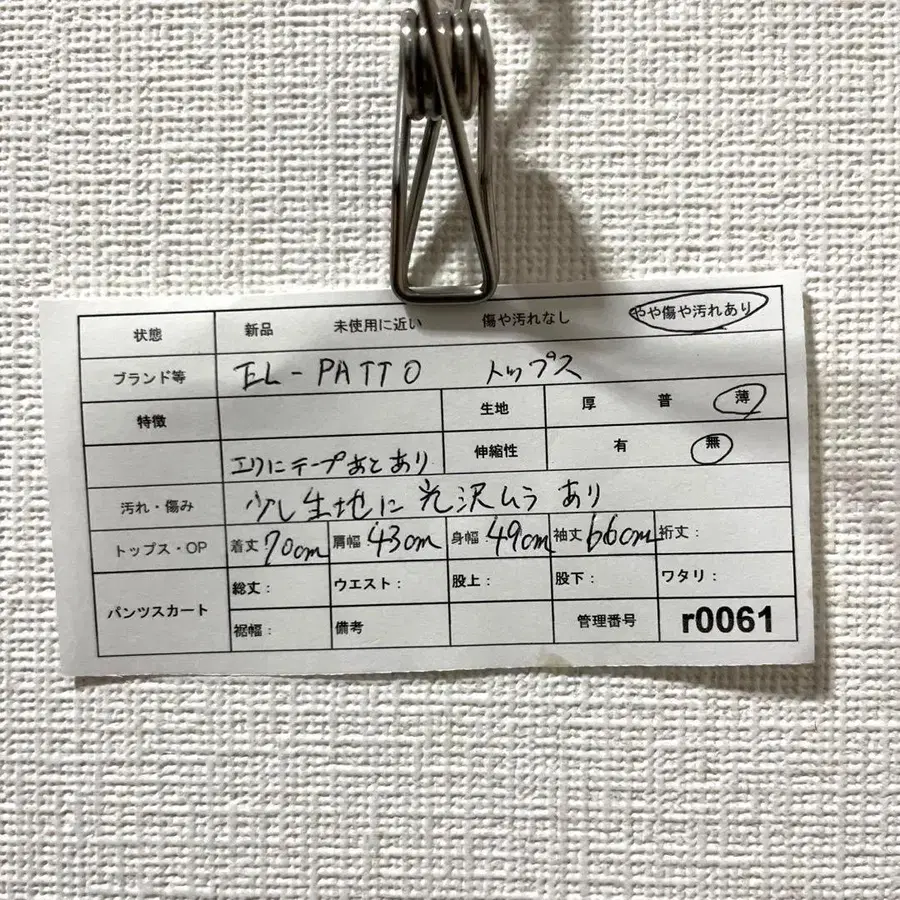 状態 新品 未使用に近い 傷や汚れなし やや傷や汚れあり
ブランド等 EL-PATTO トップス
特徴 生地 厚 普 薄
エリにテープあとあり 伸縮性 有 無
汚れ・傷み 少し生地に光沢ムラあり
トップス・OP 着丈 70cm 肩幅 43cm 身幅 49cm 袖丈 66cm 裄丈:
パンツスカート 総丈: ウエスト: 股上: 股下: ワタリ:
裾幅: 備考 管理番号 r0061